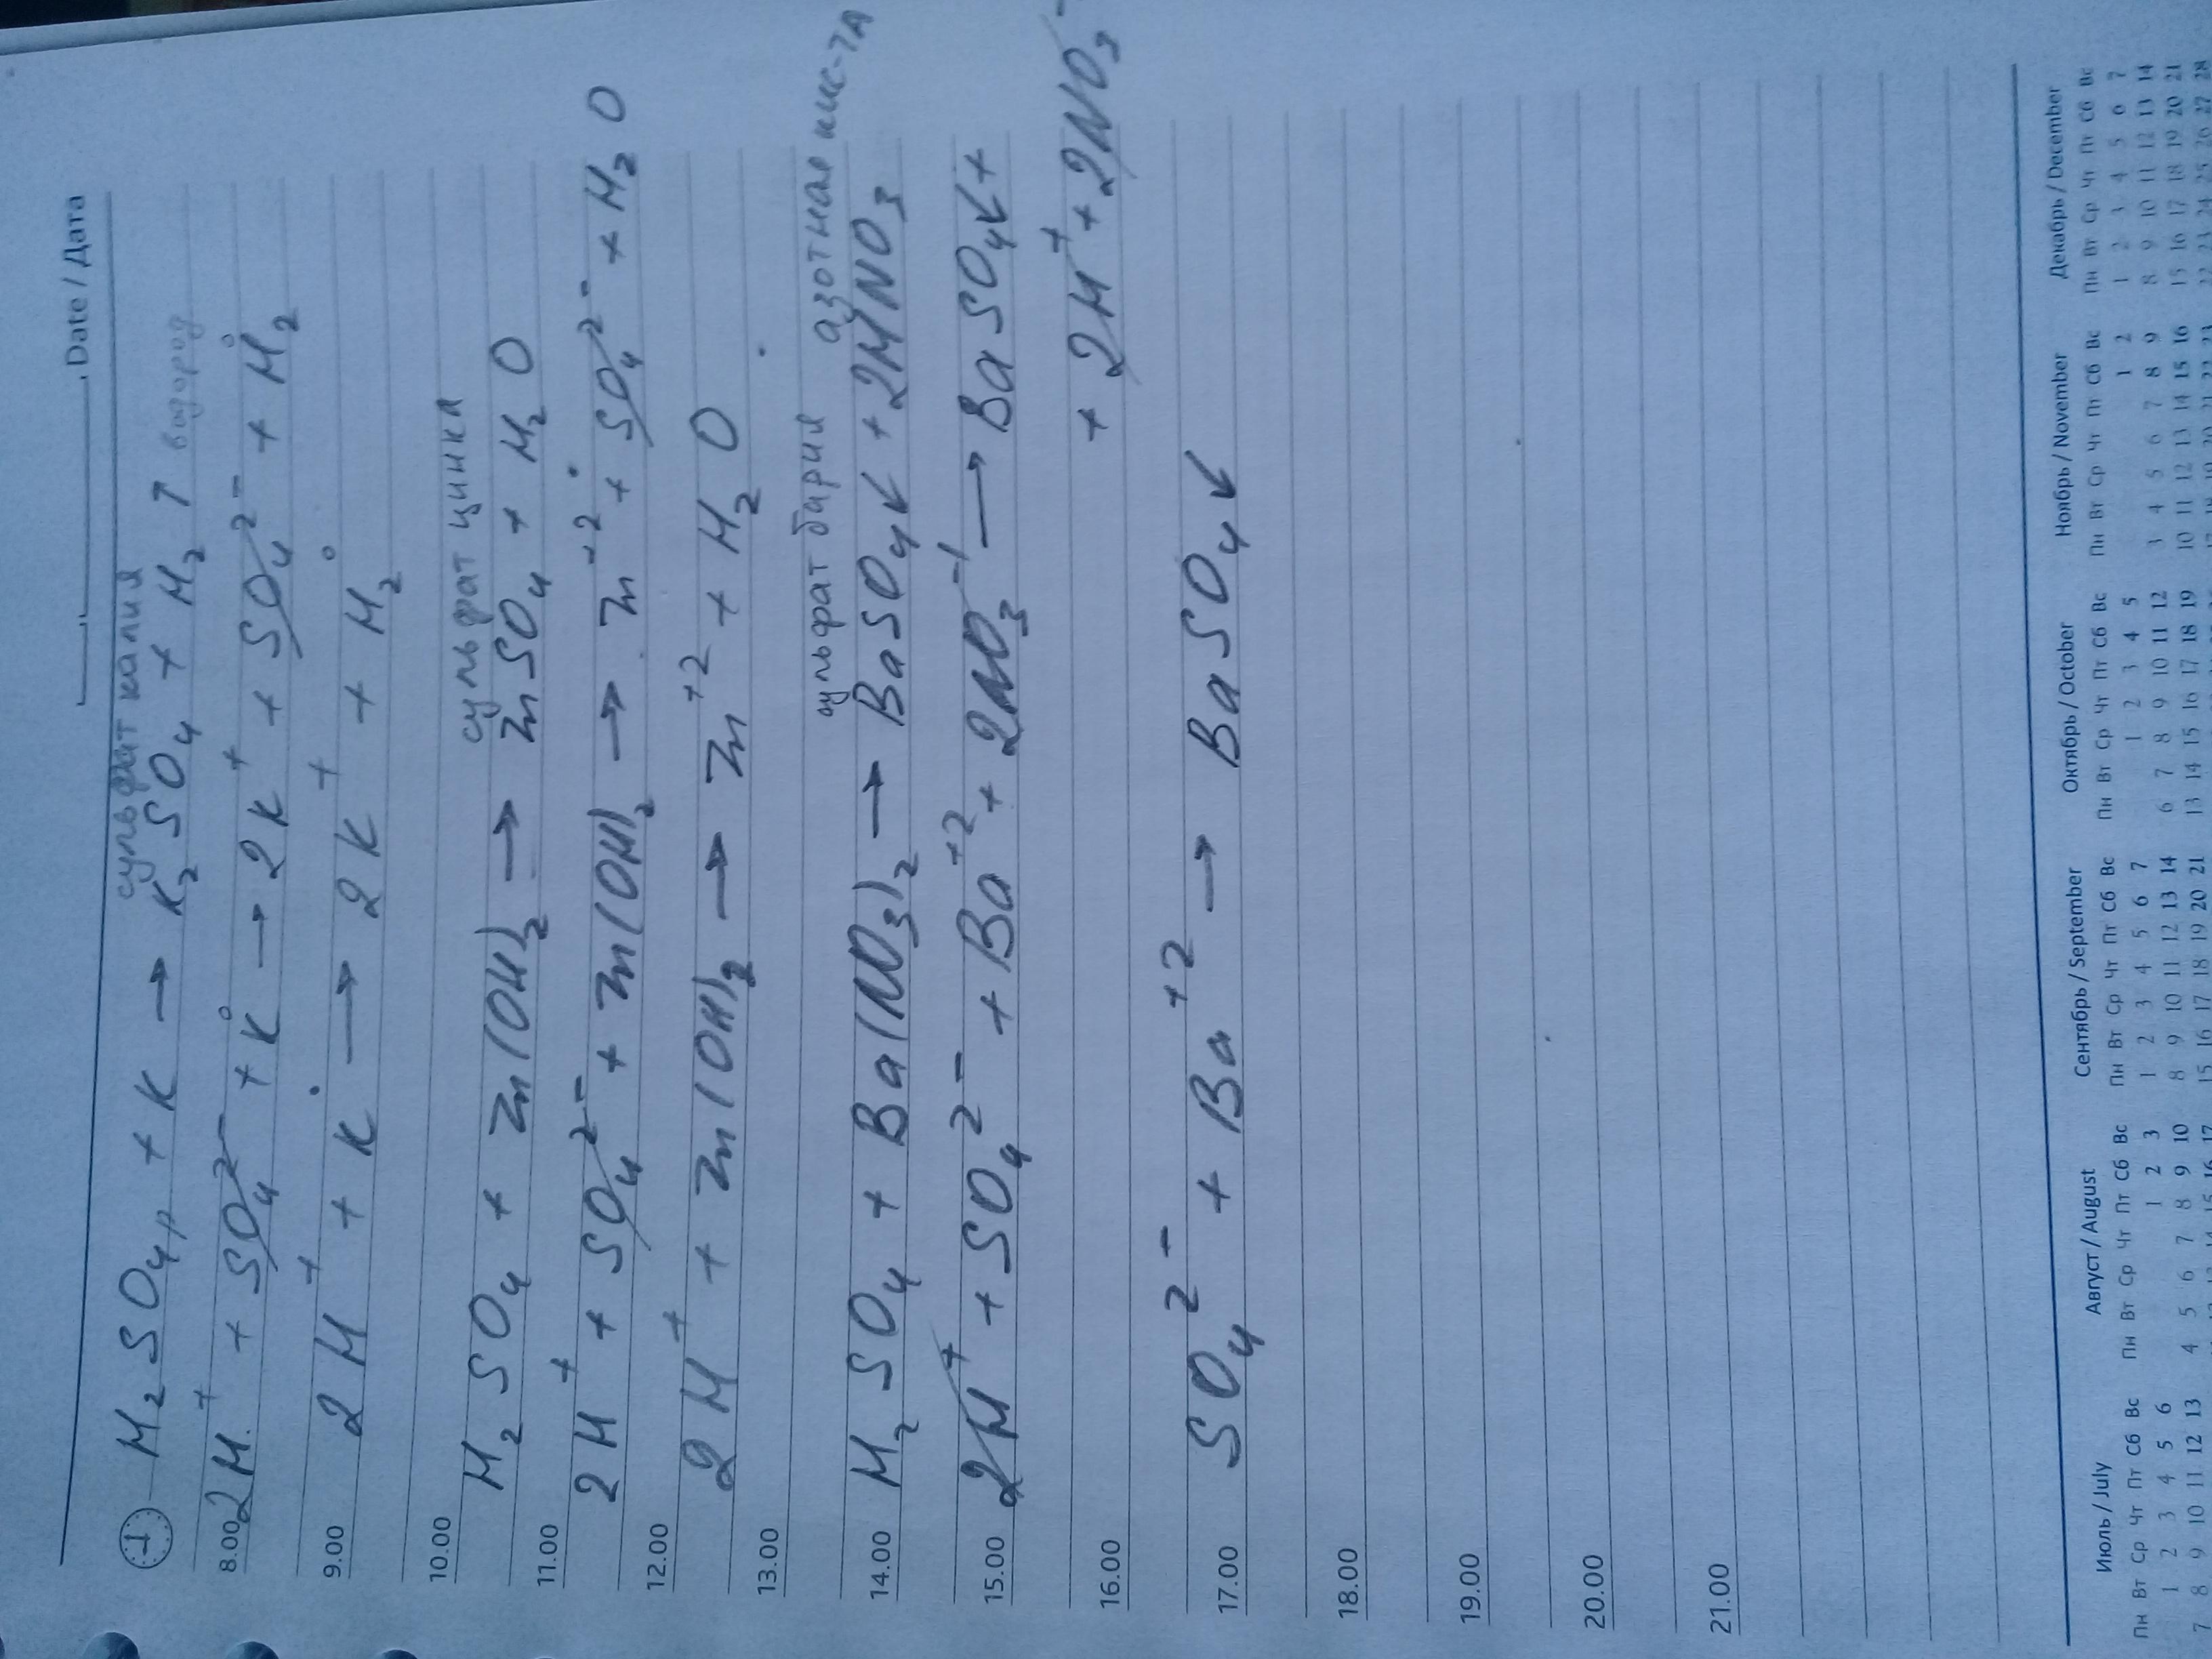 Date / Дата
сульфат калия
H₂SO₄р + K → K₂SO₄ + H₂↑ водород
8.00 2H⁺ + SO₄²⁻ + K⁰ → 2K⁺ + SO₄²⁻ + H₂⁰
9.00 2H⁺ + K → 2K⁺ + H₂⁰
сульфат цинка
10.00 H₂SO₄ + Zn(OH)₂ → ZnSO₄ + H₂O
11.00 2H⁺ + SO₄²⁻ + Zn(OH)₂ → Zn⁺² + SO₄²⁻ + H₂O
12.00 2H⁺ + Zn(OH)₂ → Zn⁺² + H₂O
13.00
сульфат бария азотная кис-та
14.00 H₂SO₄ + Ba(NO₃)₂ → BaSO₄↓ + 2HNO₃
15.00 2H⁺ + SO₄²⁻ + Ba⁺² + 2NO₃⁻¹ → BaSO₄↓ +
16.00 + 2H⁺ + 2NO₃⁻
17.00 SO₄²⁻ + Ba⁺² → BaSO₄↓
18.00
19.00
20.00
21.00
Июль / July Август / August Сентябрь / September Октябрь / October Ноябрь / November Декабрь / December
Пн Вт Ср Чт Пт Сб Вс Пн Вт Ср Чт Пт Сб Вс Пн Вт Ср Чт Пт Сб Вс Пн Вт Ср Чт Пт Сб Вс Пн Вт Ср Чт Пт Сб Вс Пн Вт Ср Чт Пт Сб Вс
1 2 3 4 5 6 1 2 3 1 2 3 4 5 6 7 1 2 3 4 5 1 2 1 2 3 4 5 6 7
7 8 9 10 11 12 13 4 5 6 7 8 9 10 8 9 10 11 12 13 14 6 7 8 9 10 11 12 3 4 5 6 7 8 9 8 9 10 11 12 13 14
15 16 17 18 19 20 21 13 14 15 16 17 18 19 10 11 12 13 14 15 16 15 16 17 18 19 20 21